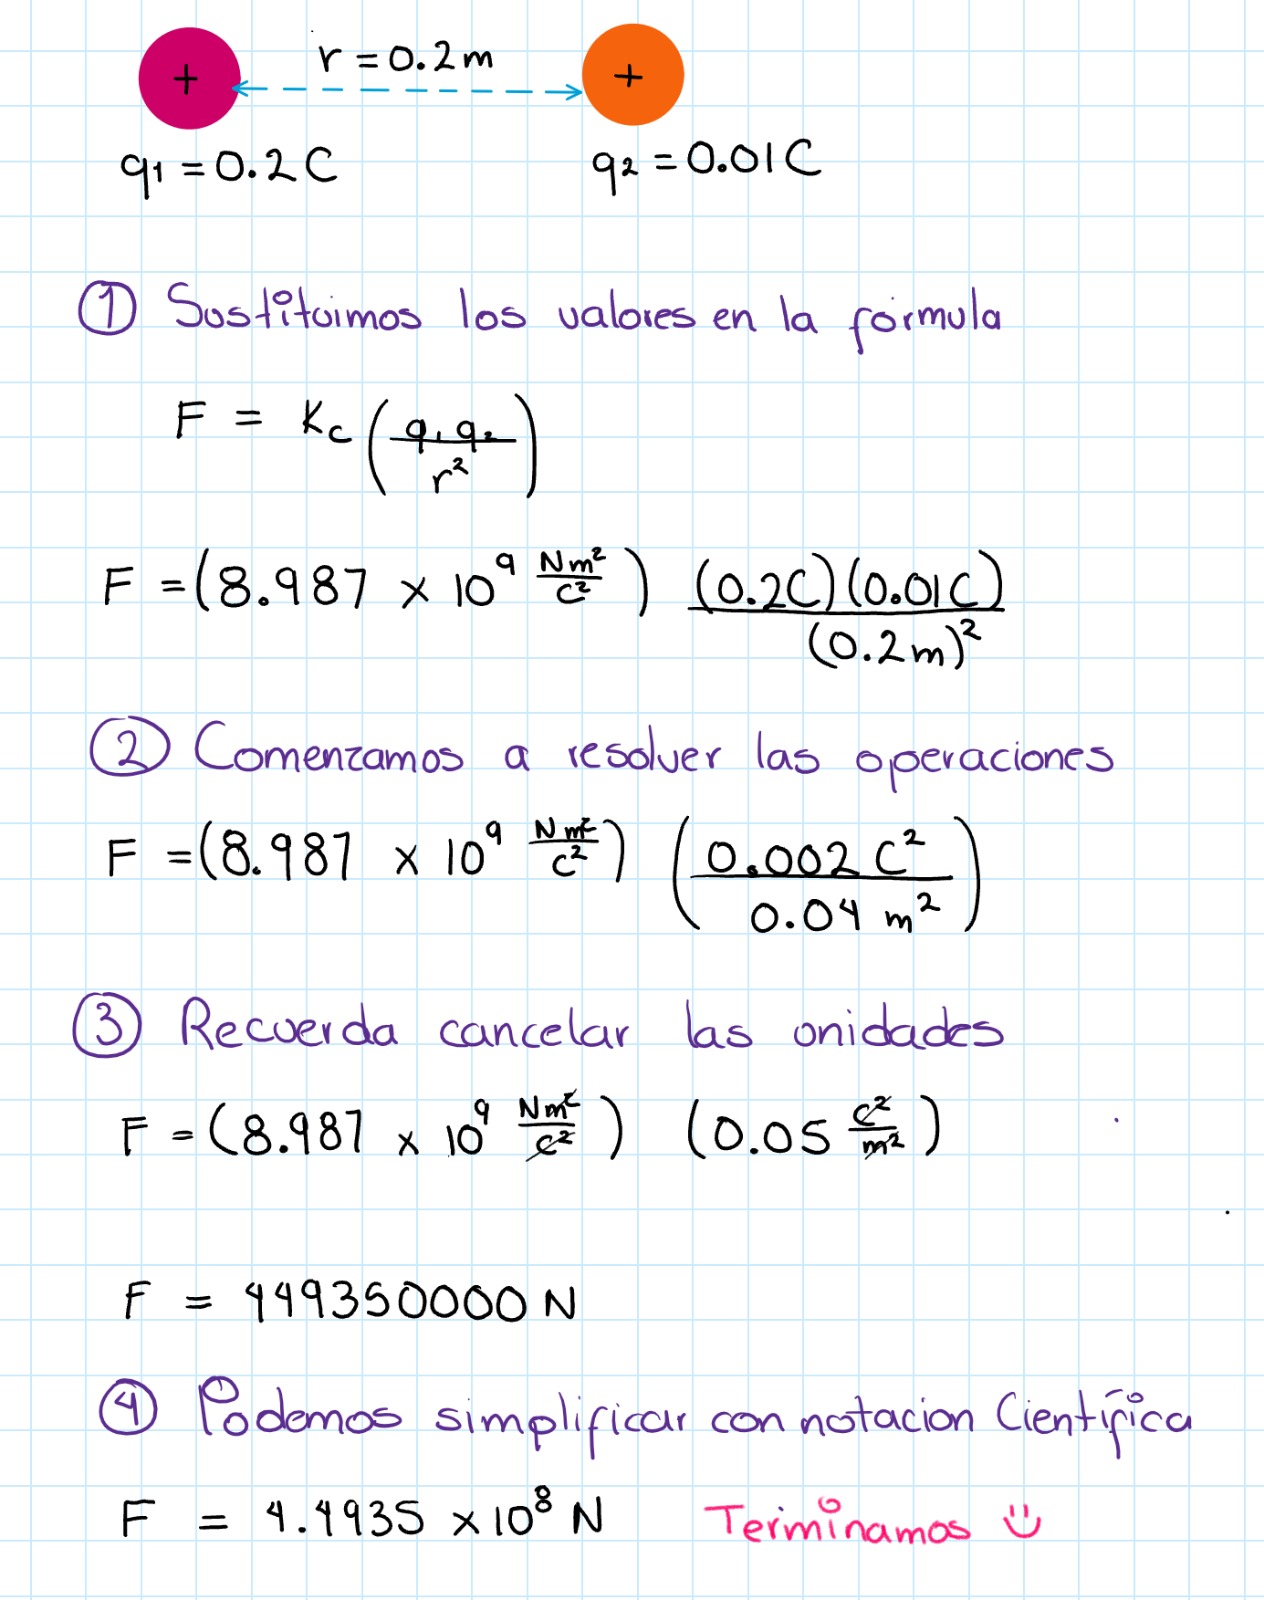 r = 0.2 m
+ +
q₁ = 0.2 C q₂ = 0.01 C
① Sustituimos los valores en la formula
F = Kc (q₁q₂ / r²)
F = (8.987 × 10⁹ Nm²/C²) (0.2C)(0.01C) / (0.2m)²
② Comenzamos a resolver las operaciones
F = (8.987 × 10⁹ Nm²/C²) (0.002 C² / 0.04 m²)
③ Recuerda cancelar las unidades
F = (8.987 × 10⁹ Nm²/C²) (0.05 C²/m²)
F = 449350000 N
④ Podemos simplificar con notacion Científica
F = 4.4935 × 10⁸ N Terminamos